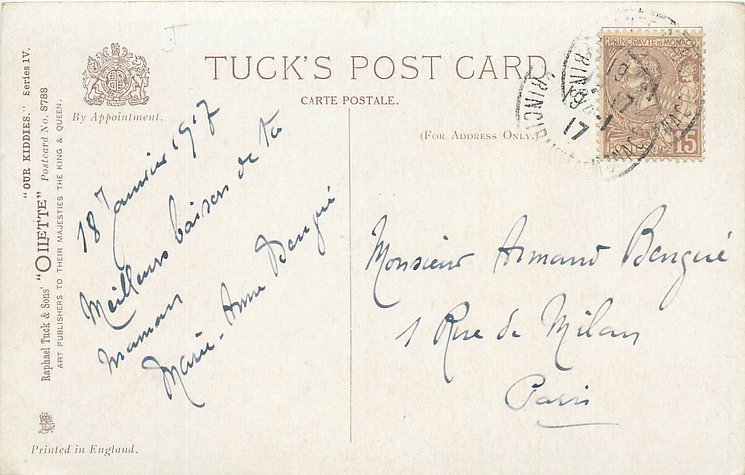 "OUR KIDDIES." Series IV.
Raphael Tuck & Sons' "OILETTE" Postcard No. 8788
ART PUBLISHERS TO THEIR MAJESTIES THE KING & QUEEN.
By Appointment.
TUCK'S POST CARD
CARTE POSTALE.
(FOR ADDRESS ONLY
18 Janvier 1917
Meilleurs baisers de ta
maman
Marie-Anne Bengué
PRINCIPAUTÉ DE MONACO
15
17
Monsieur Armand Bengué
1 Rue de Milan
Paris
Printed in England.